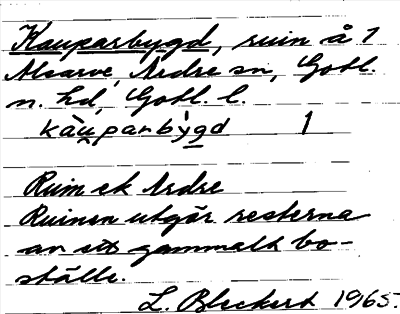 Kauparbygd, ruin å 1
Alsarve, Ardre sn, Gotl.
n. hd, Gotl. l.
kàu̯parby̆gd 1
Ruin ek Ardre
Ruinen utgör resterna
av ett gammalt bo-
ställe.
L. Bleckert 1965.